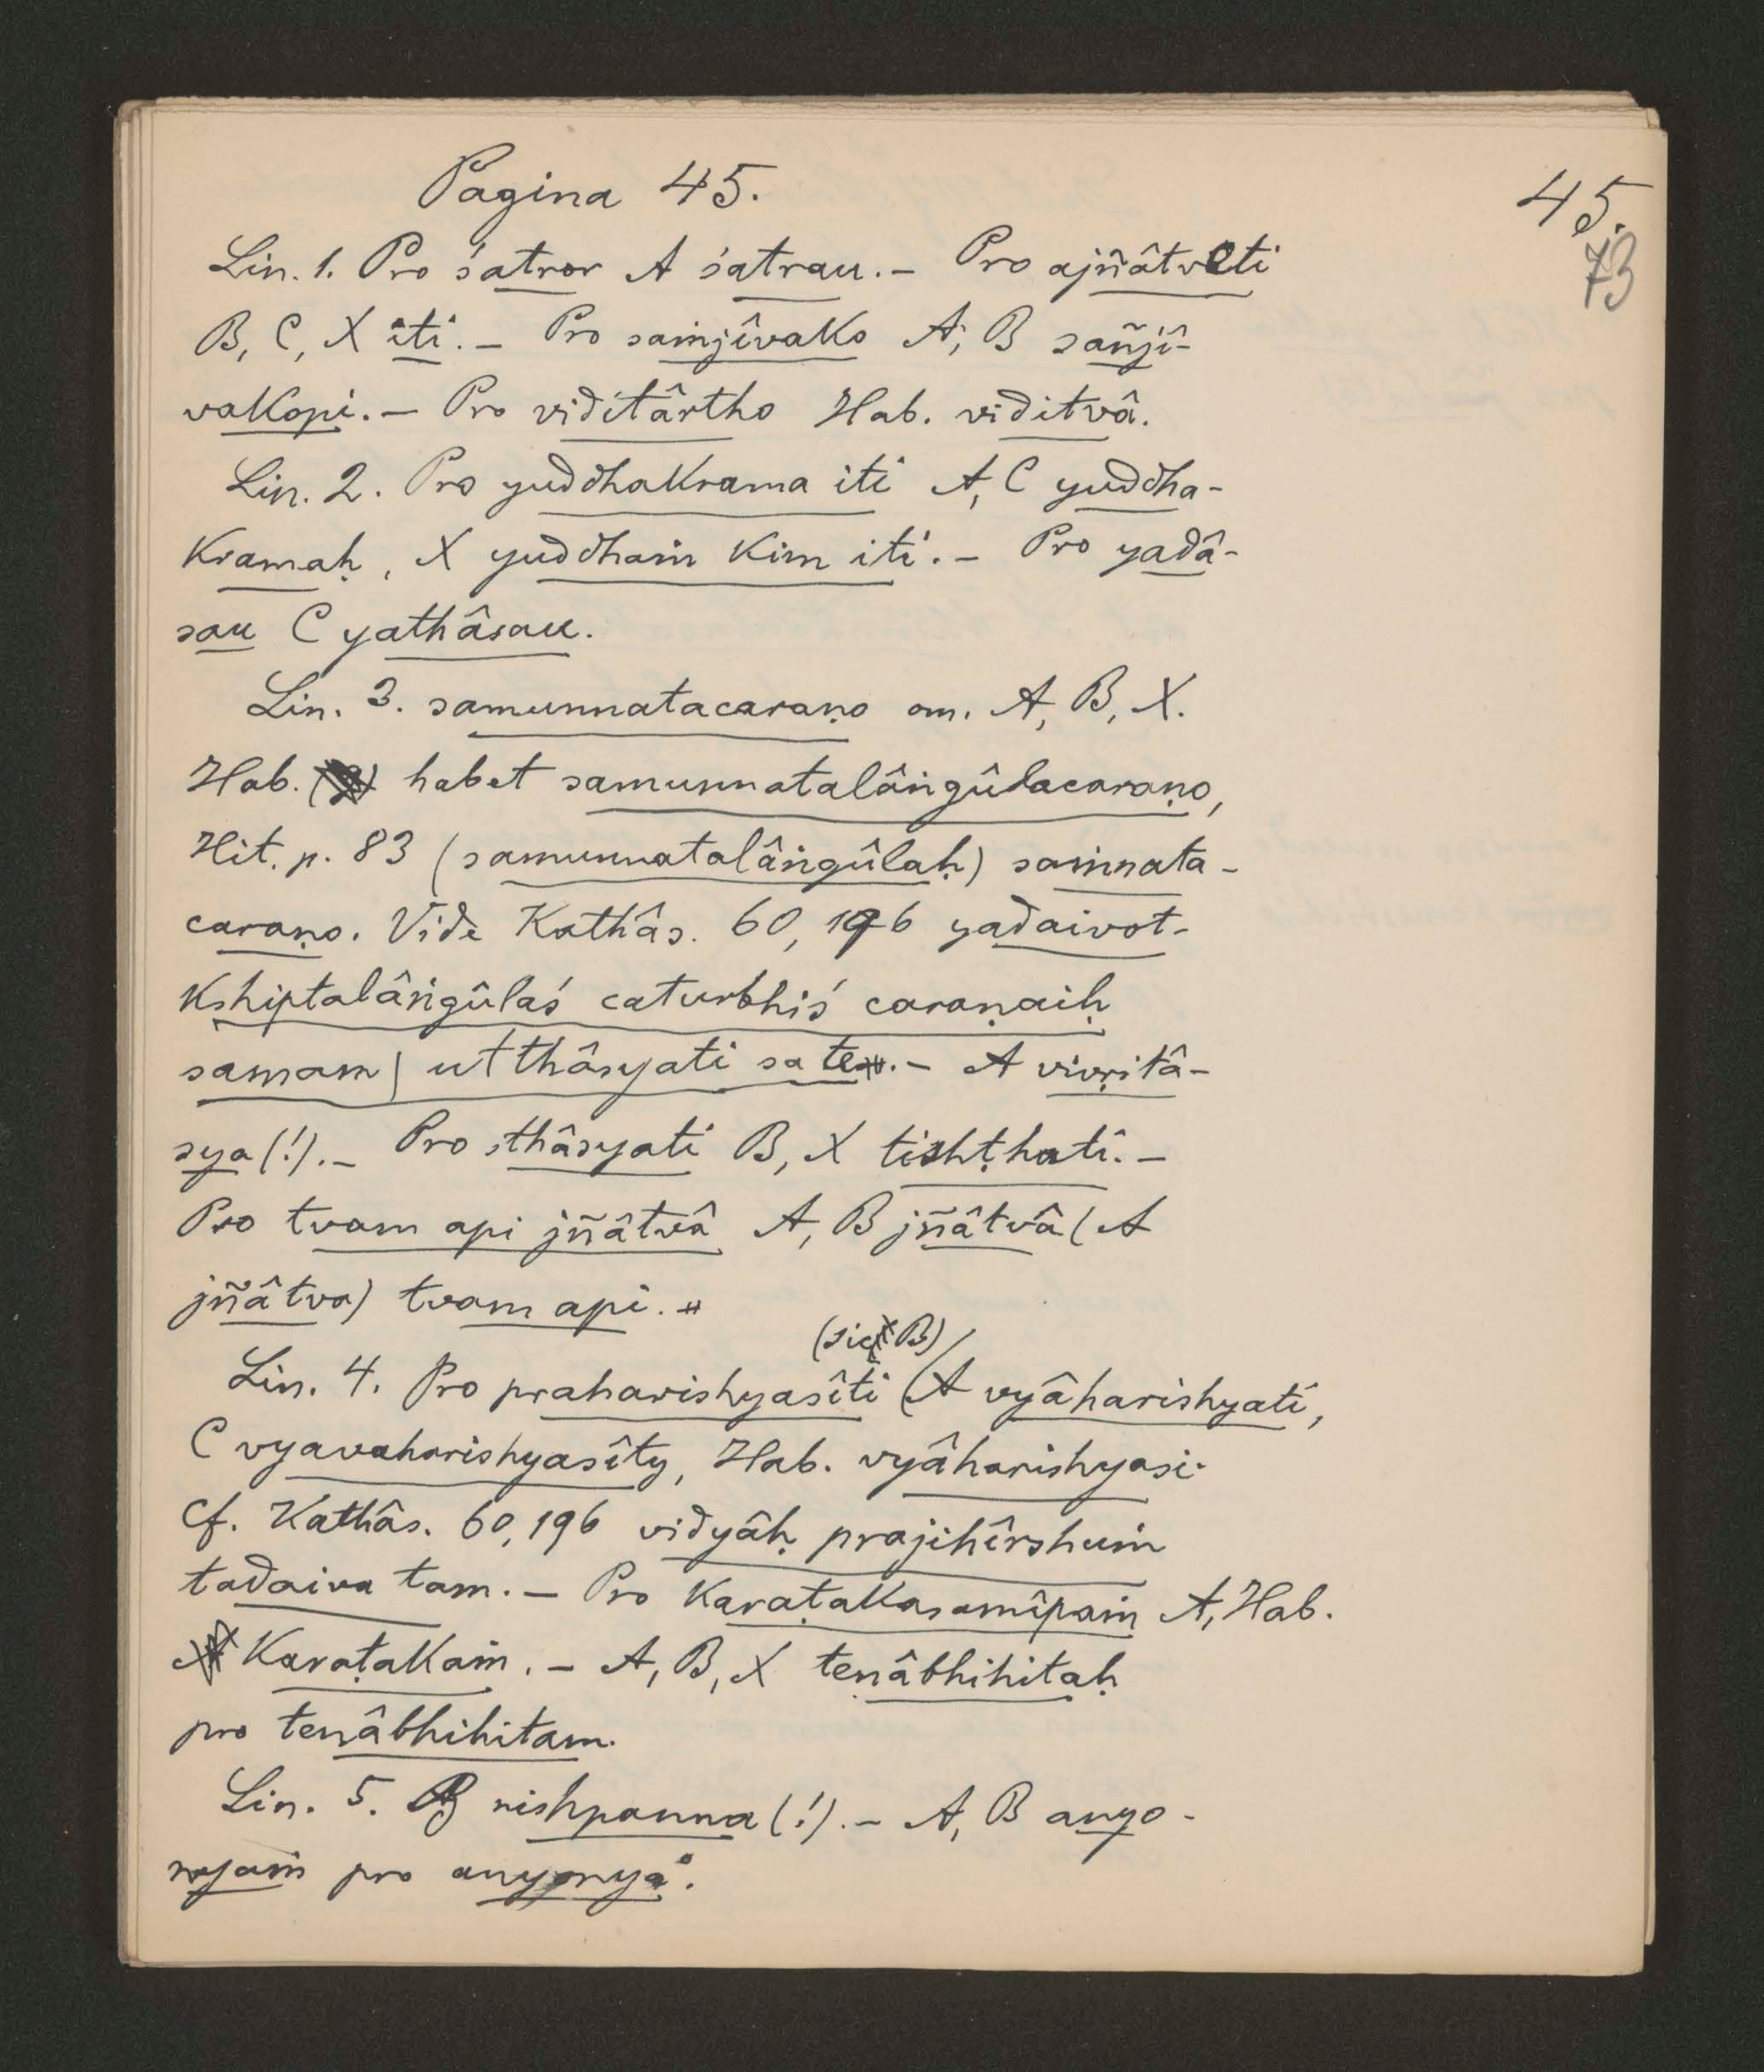 Pagina 45.
45.
73
Lin. 1. Pro śatror A śatrau. – Pro ajñâtveti
B, C, X iti. – Pro saṁjîvako A, B sañjî-
vakopi. – Pro viditârtho Hab. viditvâ.
Lin. 2. Pro yuddhakrama iti A, C yuddha-
kramaḥ, X yuddhaṁ kim iti. – Pro yadâ-
sau C yathâsau.
Lin. 3. samunnatacaraṇo om. A, B, X.
Hab. habet samunnatalâṅgûlacaraṇo,
Hit. p. 83 (samunnatalâṅgûlaḥ) saṁnata-
caraṇo. Vide Kathâs. 60, 196 yadaivot-
kshiptalâṅgûlaś caturbhiś caraṇaiḥ
samam | utthâsyati sa te. – A vivṛitâ-
sya (!). – Pro sthâsyati B, X tishṭhati. –
Pro tvam api jñâtvâ A, B jñâtvâ (A
jñâtva) tvam api.
(sic B)
Lin. 4. Pro praharishyasîti A vyâharishyati,
C vyavaharishyasîty, Hab. vyâharishyasi.
Cf. Kathâs. 60, 196 vidyâḥ prajihîrshuṁ
tadaiva tam. – Pro karaṭakasamîpaṁ A, Hab.
karaṭakaṁ. – A, B, X tenâbhihitaḥ
pro tenâbhihitam.
Lin. 5. B nishpanna (!). – A, B anyo-
nyaṁ pro anyonya°.